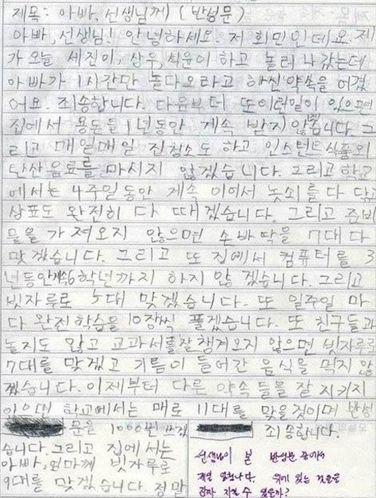 제목: 아빠, 선생님께 (반성문)
아빠, 선생님! 안녕하세요. 저 희민인데요. 제
가 오늘 세진이, 상우, 식운이 하고 놀러 나갔는데
아빠가 1시간만 놀다오라고 하신 약속을 어겼
어요. 죄송합니다. 다음부터 또 이런일이 있으면
집에서 용돈을 1년동안 계속 받지 않겠습니다. 그
리고 매일매일 집청소도 하고 인스턴트식품와
탄산음료를 마시지 않겠습니다. 그리고 학교
에서는 4주일 동안 계속 이어서 놋쇠를 다 닦고
상표도 완전히 다 떼겠습니다. 그리고 준비
물을 가져오지 않으면 손바닥을 7대 다
맞겠습니다. 그리고 또 집에서 컴퓨터를 3
년동안 6학년까지 하지 않겠습니다. 그리고
빗자루로 5대 맞겠습니다. 또 일주일 마
다 완전학습을 10장씩 풀겠습니다. 또 친구들과
놀지도 않고 교과서를 잘 챙겨오지 않으면 빗자루로
7대를 맞겠고 기름이 들어간 음식을 먹지 않
겠습니다. 이제부터 다른 약속들을 잘 지키지
않으면 학교에서는 매로 11대를 맞을것이며 반성
문을 1000번 쓰겠 죄송합니다.
습니다. 그리고 집에서는
아빠, 엄마께 빗자루로
9대를 맞겠습니다. 정말
선생님이 본 반성문 중에서
제일 입니다. 위에 있는 것들을
감히 지킬 수 있을까?